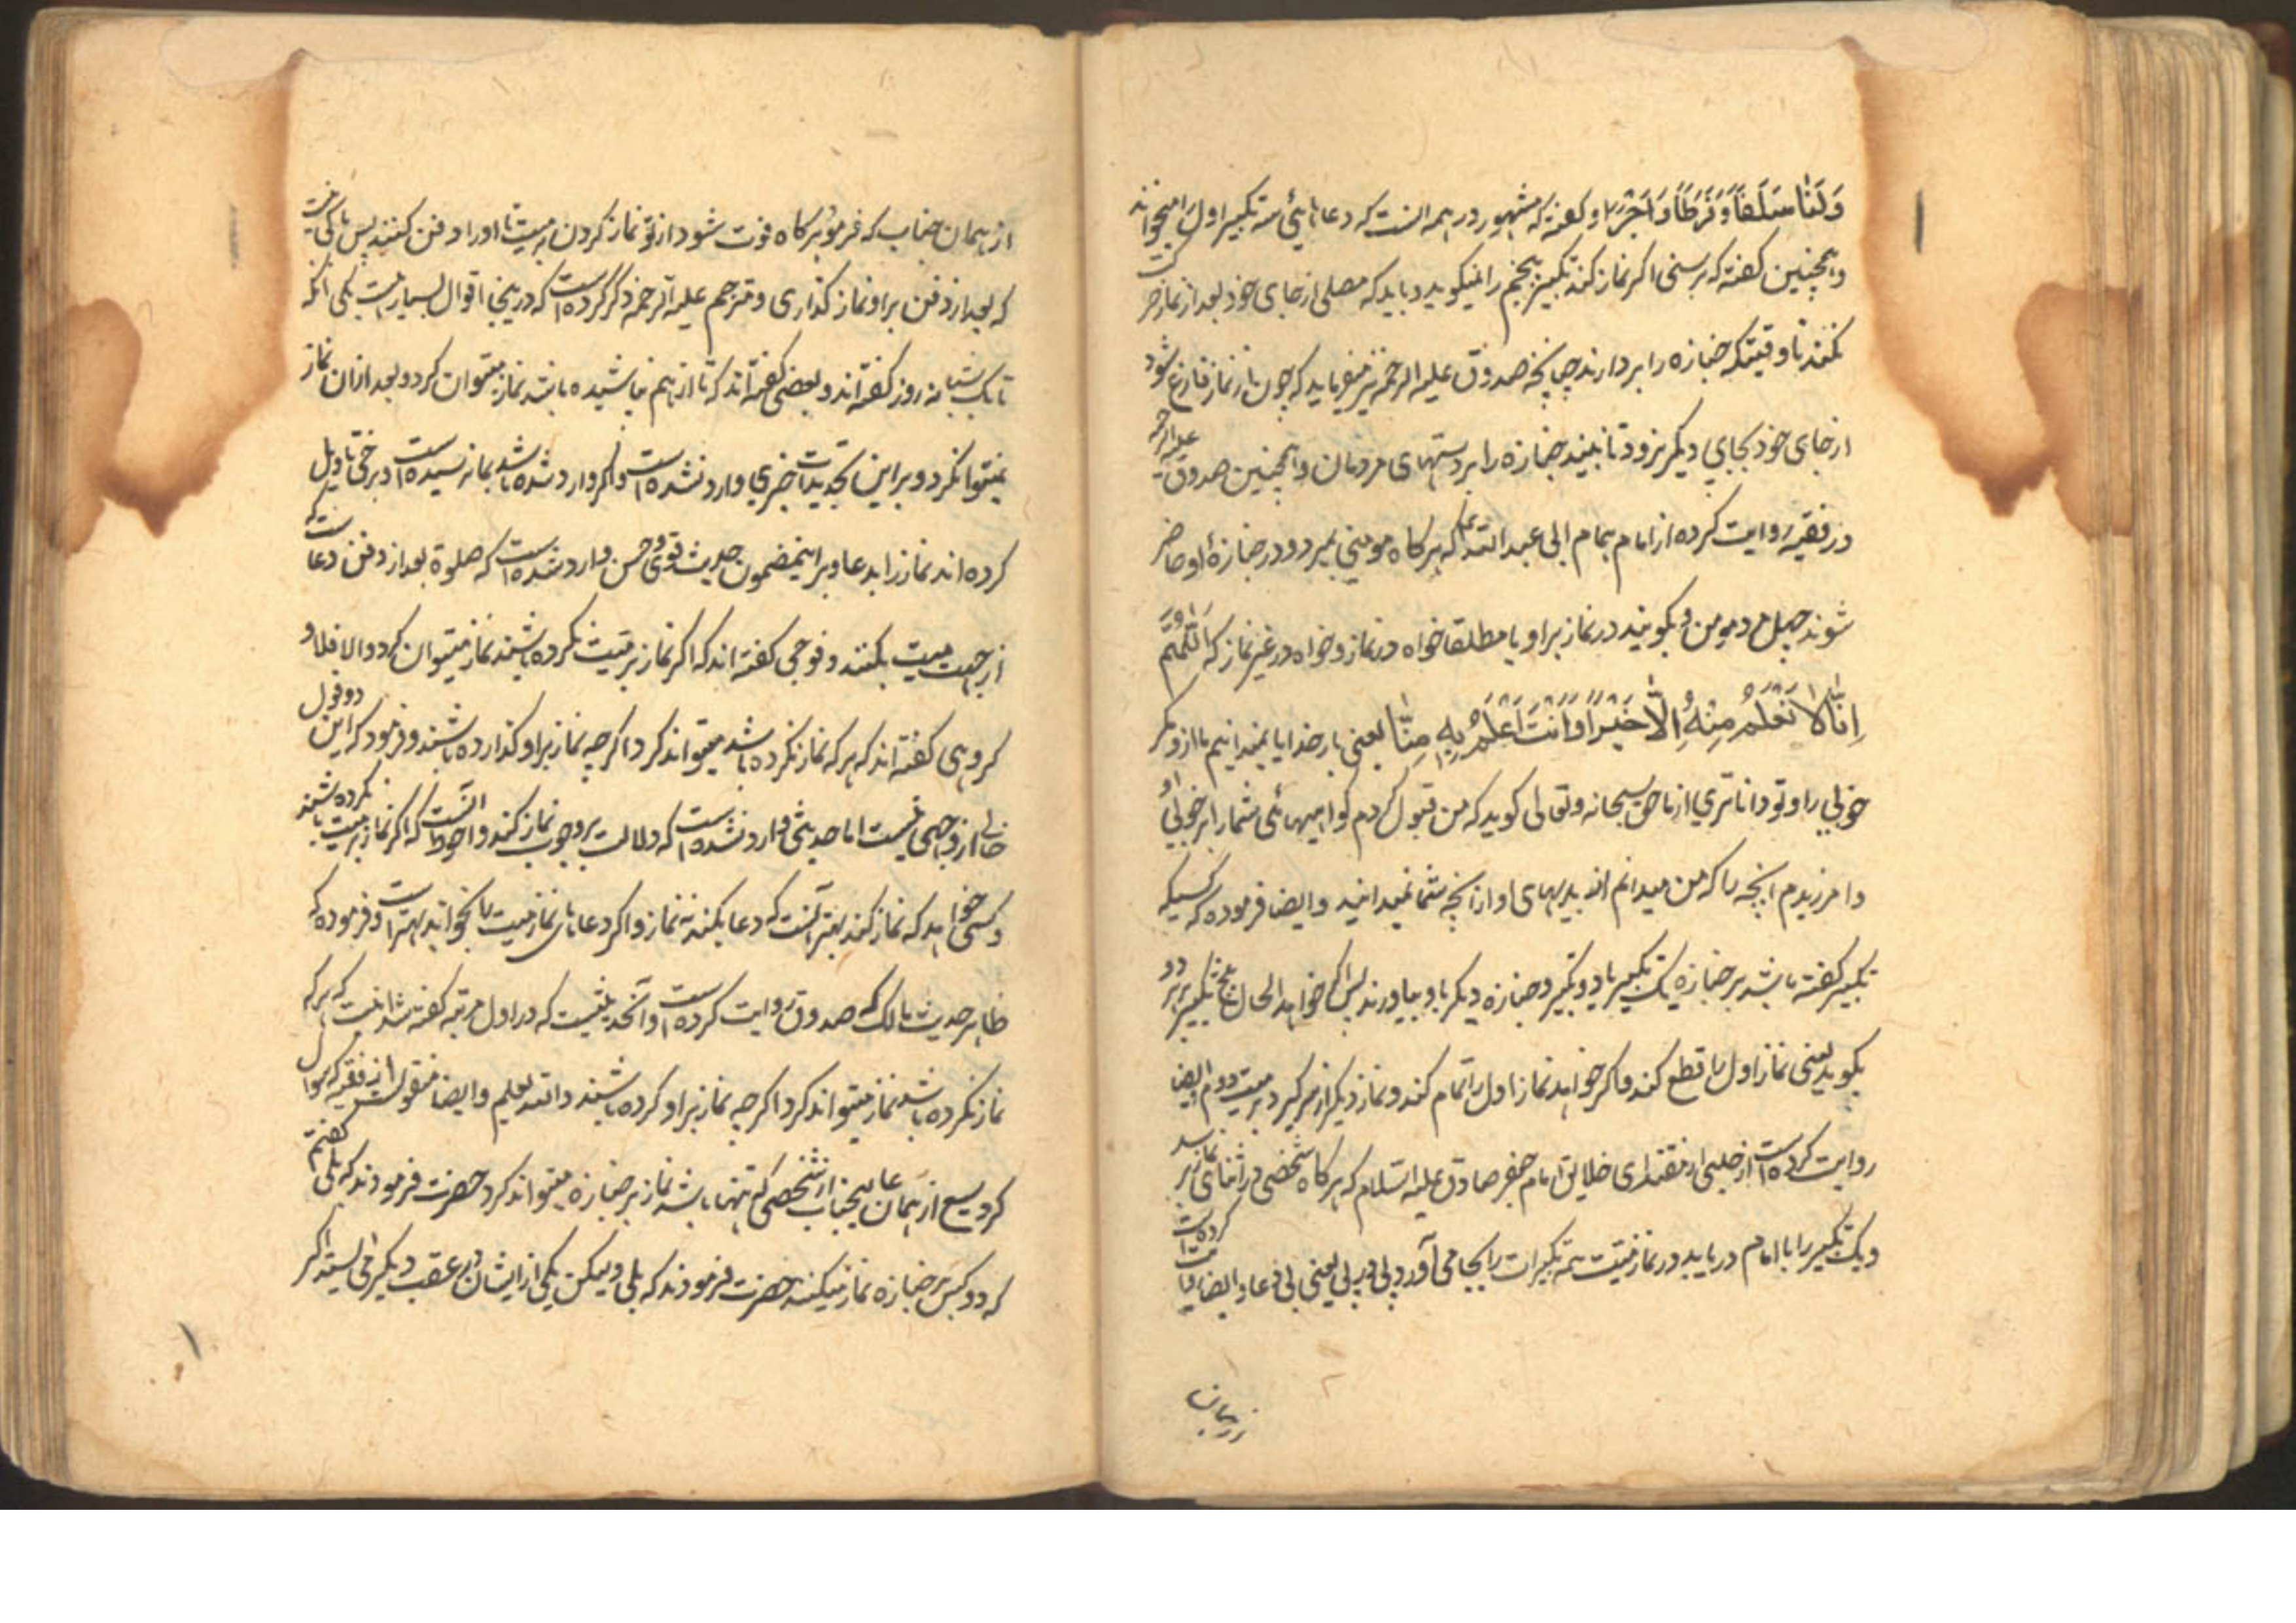 وَلَنَا سَلَفاً وَفَرَطاً وَاَجْراً و گفته که مشهور در همه انست که دعا تا سه تکبیر اول میخوانند
و همچنین گفته که بر سنی اگر نماز کند تکبیر پنجم را نمیگوید و باید که مصلی از جای خود بعد از نماز حرکت
نکند تا وقتیکه جنازه را بردارند چنانچه صدوق علیه الرحمه نیز میفرماید که چون از نماز فارغ شود
از جای خود بجای دیگر نرود تا نبیند جنازه را بر دستهای مردمان و همچنین صدوق علیه الرحمه
در فقیه روایت کرده از امام همام ابی عبد الله که هرگاه مومنی بمیرد و در جنازۀ او حاضر
شوند چهل مرد مومن و بگویند در نماز بر او یا مطلقا خواه در نماز و خواه در غیر نماز که اَللّهُمَّ
اِنّا لا نَعْلَمُ مِنْهُ اِلّا خَیْراً وَاَنْتَ اَعْلَمُ بِهِ مِنّا یعنی بار خدایا نمیدانیم ما ازو مگر
خوبی را و تو داناتری از ما حق سبحانه و تعالی گوید که من قبول کردم گواهیهای شما را بر خوبی او
و امرزیدم انچه را که من میدانم از بدیهای او از انچه شما نمیدانید و ایضا فرموده که کسیکه
تکبیر گفته باشد بر جنازه یک تکبیر یا دو تکبیر و جنازه دیگر باو بیاورند پس اگر خواهد الحال پنج تکبیر بر هر دو
بگوید یعنی نماز اول را قطع کند و اگر خواهد نماز اول را تمام کند و نماز دیگر از سر گیرد بر میت دوم ایضا
روایت کرده است از حلبی از مقتدای خلایق امام جعفر صادق علیه السلام که هرگاه شخصی در اثنای نماز برسد
و یک تکبیر را با امام دریابد در نماز میت تتمه تکبیرات را بجا می آورد پی در پی یعنی بی دعا و ایضا روایت کرده است
از همان جناب که فرمود هرگاه فوت شود از تو نماز کردن بر میت تا او را دفن کنند پس باکی نیست
که بعد از دفن بر او نماز گذاری و مترجم علیه الرحمه ذکر کرده است که در اینجا اقوال بسیار است یکی انکه
تا یک شبانه روز گفته اند و بعضی گفته اند که تا از هم نپاشیده باشد نماز میتوان کرد و بعد ازان نماز
نمیتوان کرد و بر این تحدیدات خبری وارد نشده است و اگر وارد شده باشد بما نرسیده است و برخی تاویل
کرده اند نماز را بدعا و بر اینمضمون حدیث قوی و حسن وارد شده است که صلوة بعد از دفن دعا ست که
از جهت میت بکنند و فوجی گفته اند که اگر نماز بر میت نکرده باشند نماز میتوان کرد و الا فلا و
گروهی گفته اند که هر که نماز نکرده باشد میتواند کرد اگرچه نماز بر او گذارده باشند و فرمود که این دو قول
خالی از وجهی نیست اما حدیثی وارد نشده است که دلالت بر وجوب نماز کند و احوط انست که اگر نماز بر میت نکرده باشند
و کسی خواهد که نماز کند بهتر آنست که دعا بکند نه نماز و اگر دعاهای نماز میت را بخواند بهتر است و فرموده که
ظاهر حدیث مالک که صدوق روایت کرده است و آنحدیثیست که در اول مرتبه گفته شد انست که هر که
نماز نکرده باشد نماز میتواند کرد اگرچه نماز بر او کرده باشند و الله یعلم و ایضا منقولست از فقیه که سوال
کرد یسع از همان عالیجناب از شخصی که تنها باشد نماز بر جنازه میتواند کرد حضرت فرمودند که بلی گفتم
که دو کس بر جنازه نماز میکنند حضرت فرمودند که بلی ولیکن یکی از ایشان در عقب دیگر می ایستد اگر